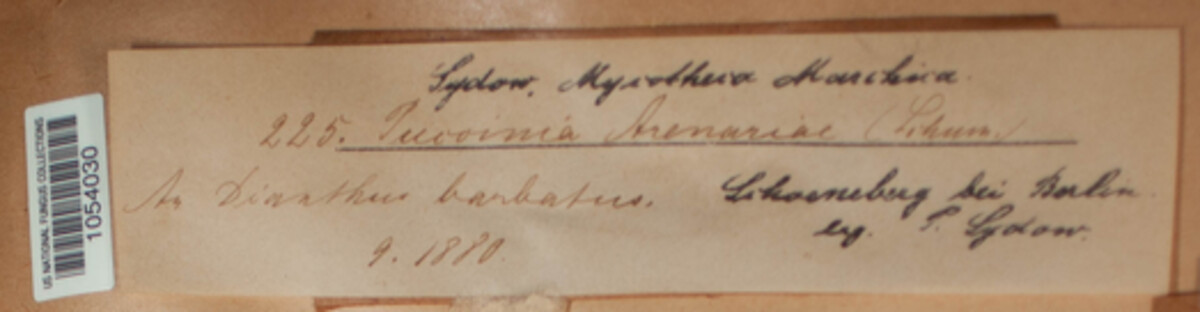 Sydow, Mycotheca Marchica.
225. Puccinia Arenariae (Schum.)
An Dianthus barbatus.
9. 1880.
Schoeneberg bei Berlin.
leg. P. Sydow.
US NATIONAL FUNGUS COLLECTIONS
1054030